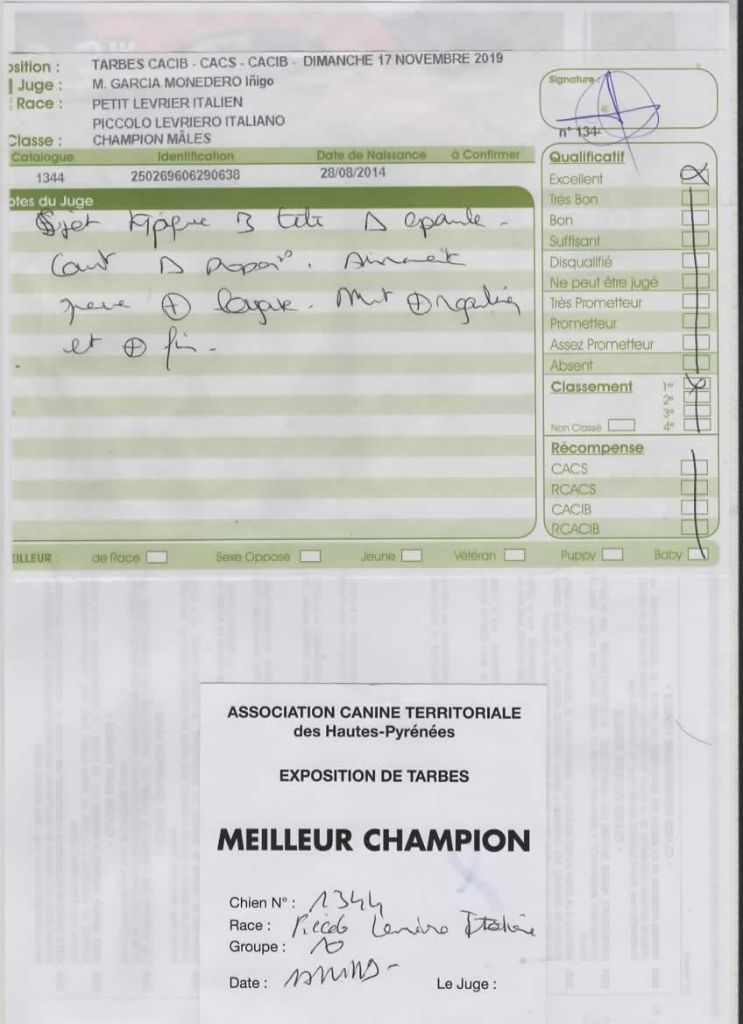 osition : TARBES CACIB - CACS - CACIB - DIMANCHE 17 NOVEMBRE 2019
Juge : M. GARCIA MONEDERO Iñigo
Race : PETIT LEVRIER ITALIEN
PICCOLO LEVRIERO ITALIANO
Classe : CHAMPION MÂLES
Signature :
n° 134
Catalogue Identification Date de Naissance à Confirmer
1344 250269606290638 28/08/2014
otes du Juge
et ⊕ fin -
Qualificatif
Excellent
Très Bon
Bon
Suffisant
Disqualifié
Ne peut être jugé
Très Prometteur
Prometteur
Assez Prometteur
Absent
Classement 1er
2e
3e
Non Classé 4e
Récompense
CACS
RCACS
CACIB
RCACIB
EILLEUR : de Race Sexe Opposé Jeune Vétéran Puppy Baby
ASSOCIATION CANINE TERRITORIALE
des Hautes-Pyrénées
EXPOSITION DE TARBES
MEILLEUR CHAMPION
Chien N° : 1344
Race : Piccolo Levriero Italiano
Groupe : 10
Date :
Le Juge :